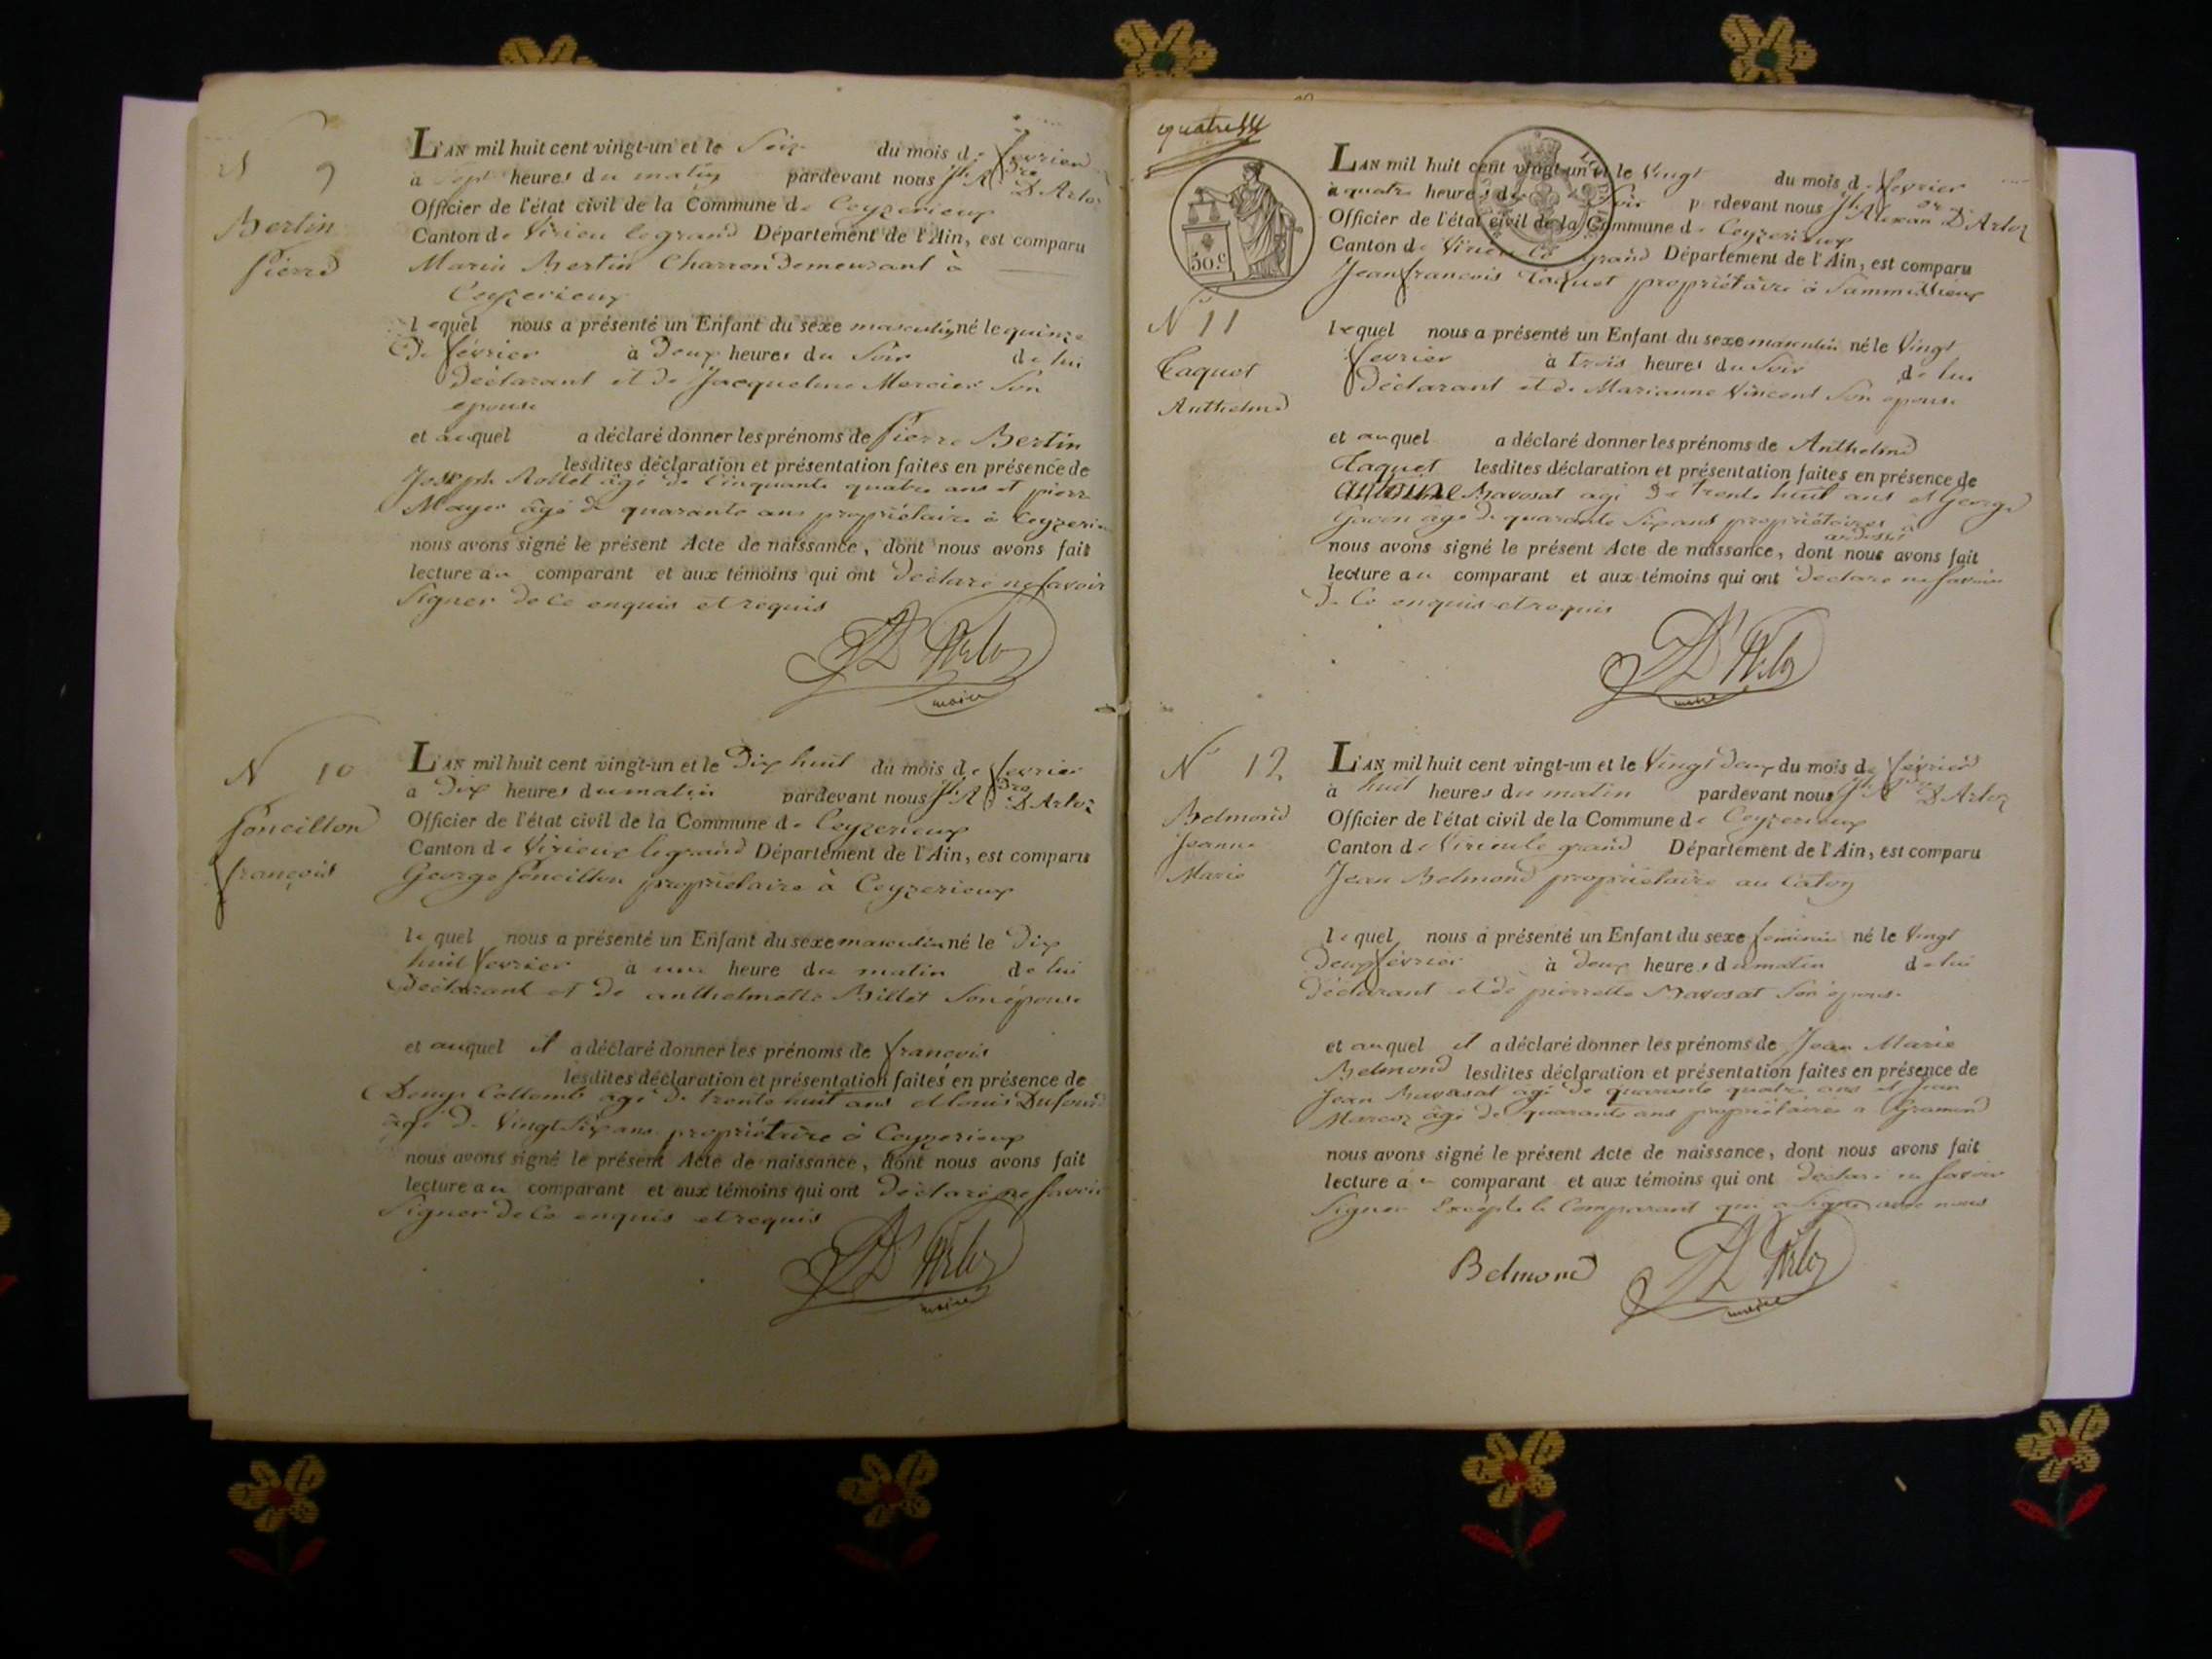 N 9
Bertin
Pierre
L'AN mil huit cent vingt-un et le Seize du mois de fevrier
a Sept heures du matin pardevant nous Jh Adre D'Arloz
Officier de l'état civil de la Commune de Ceyzerieux
Canton de Virieu le grand Département de l'Ain, est comparu
Marin Bertin Charron demeurant à
Ceyzerieux
lequel nous a présenté un Enfant du sexe masculin né le quinze
De février à Deux heures du Soir de lui
Déclarant et de Jacqueline Mercier Son
epouse
et auquel a déclaré donner les prénoms de Pierre Bertin
lesdites déclaration et présentation faites en présence de
Joseph Rollet âgé de Cinquante quatre ans et pierre
Mayer âgé de quarante ans propriétaire à Ceyzerieux
nous avons signé le présent Acte de naissance, dont nous avons fait
lecture au comparant et aux témoins qui ont Déclaré ne Savoir
Signer de Ce enquis et requis
D'Arloz
maire
N 10
Poncillon
françois
L'AN mil huit cent vingt-un et le Dix huit du mois de fevrier
a Dix heures du matin pardevant nous Jh Adre D'Arloz
Officier de l'état civil de la Commune de Ceyzerieux
Canton de Virieux le grand Département de l'Ain, est comparu
George Poncillon propriétaire à Ceyzerieux
lequel nous a présenté un Enfant du sexe masculin né le Dix
huit fevrier à une heure du matin de lui
Déclarant et de anthelmette Billet Son épouse
et auquel il a déclaré donner les prénoms de françois
lesdites déclaration et présentation faites en présence de
Denys Collomb âgé de trente huit ans et Louis Dufour
âgé de Vingt Six ans propriétaire à Ceyzerieux
nous avons signé le présent Acte de naissance, dont nous avons fait
lecture au comparant et aux témoins qui ont Déclaré ne Savoir
Signer de Ce enquis et requis
D'Arloz
maire
quatre
50.c
N° 11
Taquet
Anthelme
L'AN mil huit cent vingt-un et le Vingt du mois de fevrier
à quatre heures du Soir pardevant nous Jh Alexandre D'Arloz
Officier de l'état civil de la Commune de Ceyzerieux
Canton de Virieu Le grand Département de l'Ain, est comparu
Jean francois Taquet propriétaire à Sammissieux
lequel nous a présenté un Enfant du sexe masculin né le Vingt
fevrier à trois heures du Soir de lui
Déclarant et de Marianne Vincent Son épouse
et auquel a déclaré donner les prénoms de Anthelme
Taquet lesdites déclaration et présentation faites en présence de
antoine Bavosat agé de trente huit ans et George
Gacon âgé de quarante Six ans propriétaires à
ardosset
nous avons signé le présent Acte de naissance, dont nous avons fait
lecture au comparant et aux témoins qui ont Déclaré ne Savoir
De Ce enquis et requis
D'Arloz
maire
N° 12
Belmond
Jeanne
Marie
L'AN mil huit cent vingt-un et le Vingt deux du mois de février
à huit heures du matin pardevant nous Jh Adre D'Arloz
Officier de l'état civil de la Commune de Ceyzerieux
Canton de Virieu le grand Département de l'Ain, est comparu
Jean Belmond propriétaire au Caton
lequel nous à présenté un Enfant du sexe feminin né le Vingt
Deux février à deux heures du matin de lui
Déclarant et de pierrette Bavosat Son épouse
et auquel il a déclaré donner les prénoms de Jean Marie
Belmond lesdites déclaration et présentation faites en présence de
Jean Bavosat agé de quarante quatre ans et Jean
Marcoz âgé de quarante ans propriétaires a Aramond
nous avons signé le présent Acte de naissance, dont nous avons fait
lecture au comparant et aux témoins qui ont Déclaré ne Savoir
Signer Excepté le Comparant qui a Signé avec nous
Belmond
D'Arloz
maire